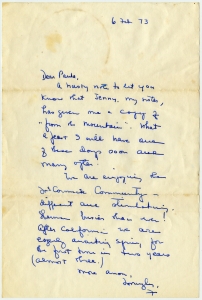 6 Feb 73
Dear Paula,
A hasty note to let you
know that Jenny, my sister,
has given me a copy of
"from the mountain". What
a feast I will have one
of these days soon and
many after.
We are enjoying the
Community –
different and stimulating.
than ever!
After California we are
eagerly awaiting spring for
the first time in two years
(almost three.)
More anon,